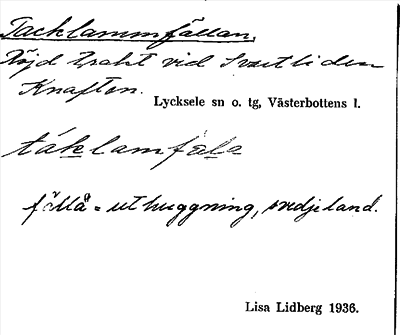 Tacklammfällan.
Röjd trakt vid Svartliden
Knaften.
Lycksele sn o. tg, Västerbottens l.
táklamfäla
fälla = uthuggning, svedjeland.
Lisa Lidberg 1936.